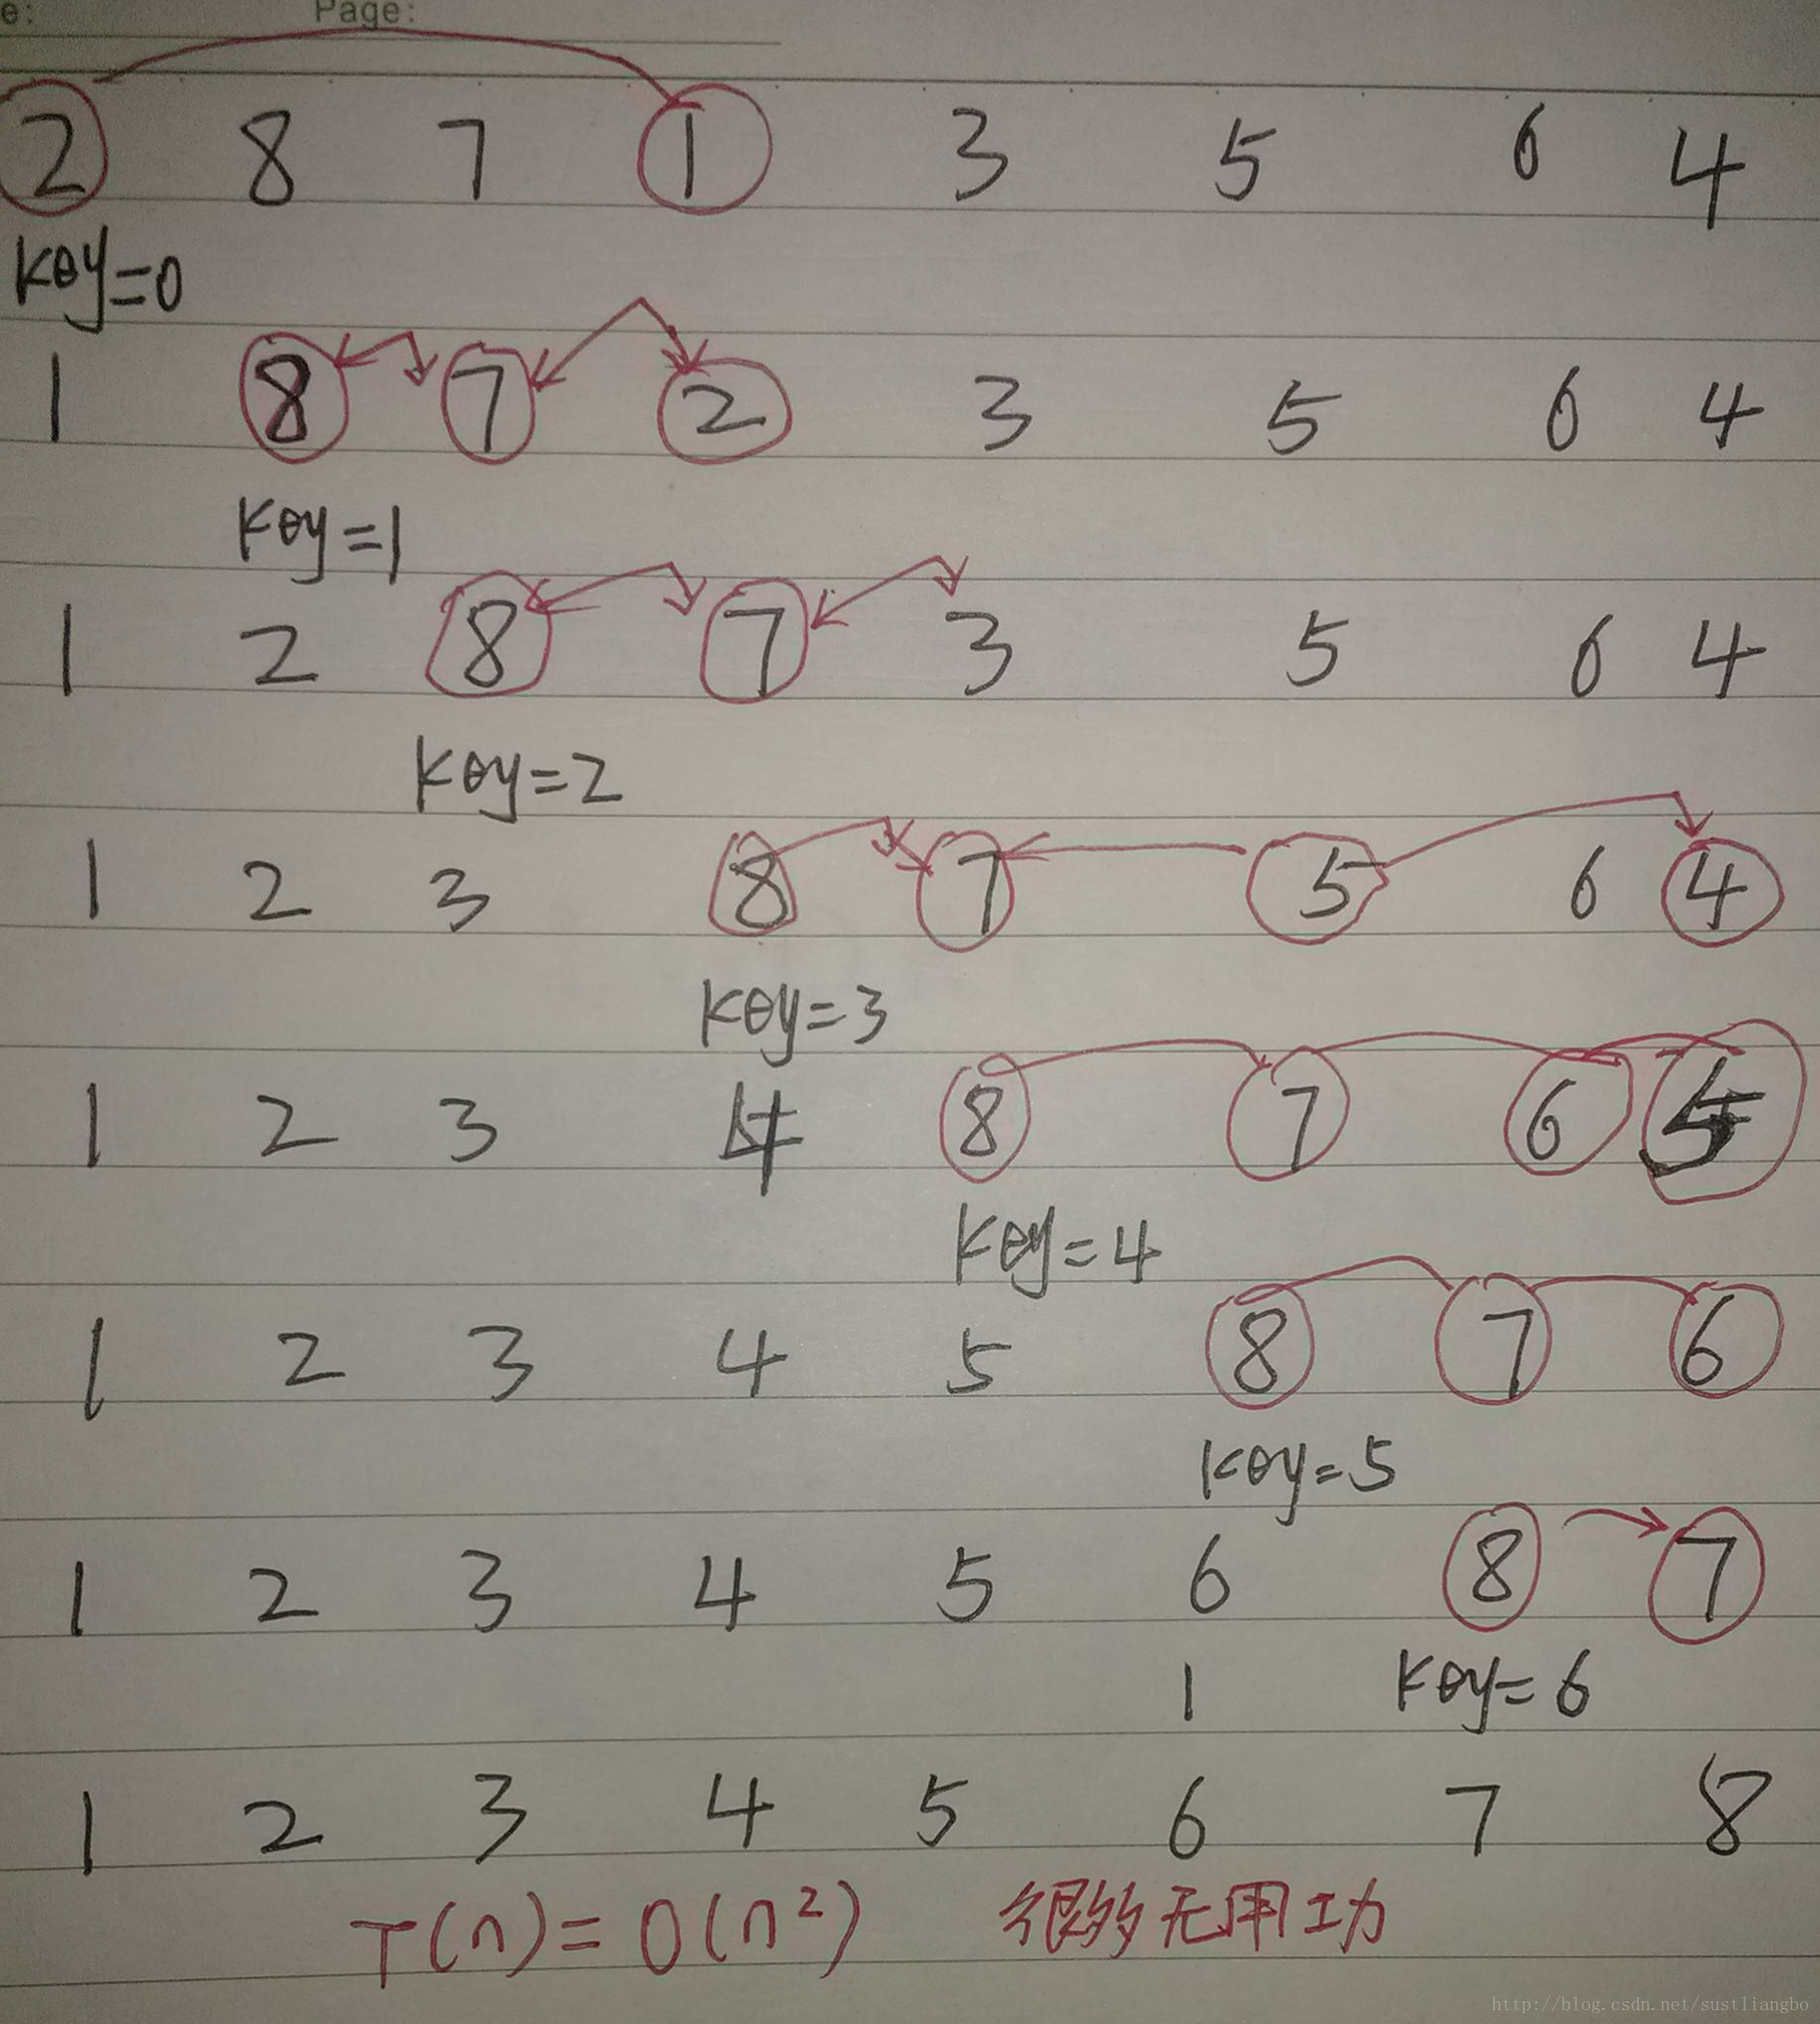 e: Page:
2 8 7 1 3 5 6 4
key=0
1 8 7 2 3 5 6 4
key=1
1 2 8 7 3 5 6 4
key=2
1 2 3 8 7 5 6 4
key=3
1 2 3 4 8 7 6 5
key=4
1 2 3 4 5 8 7 6
key=5
1 2 3 4 5 6 8 7
1 key=6
1 2 3 4 5 6 7 8
T(n)=O(n²) 很多无用功
http://blog.csdn.net/sustliangbo